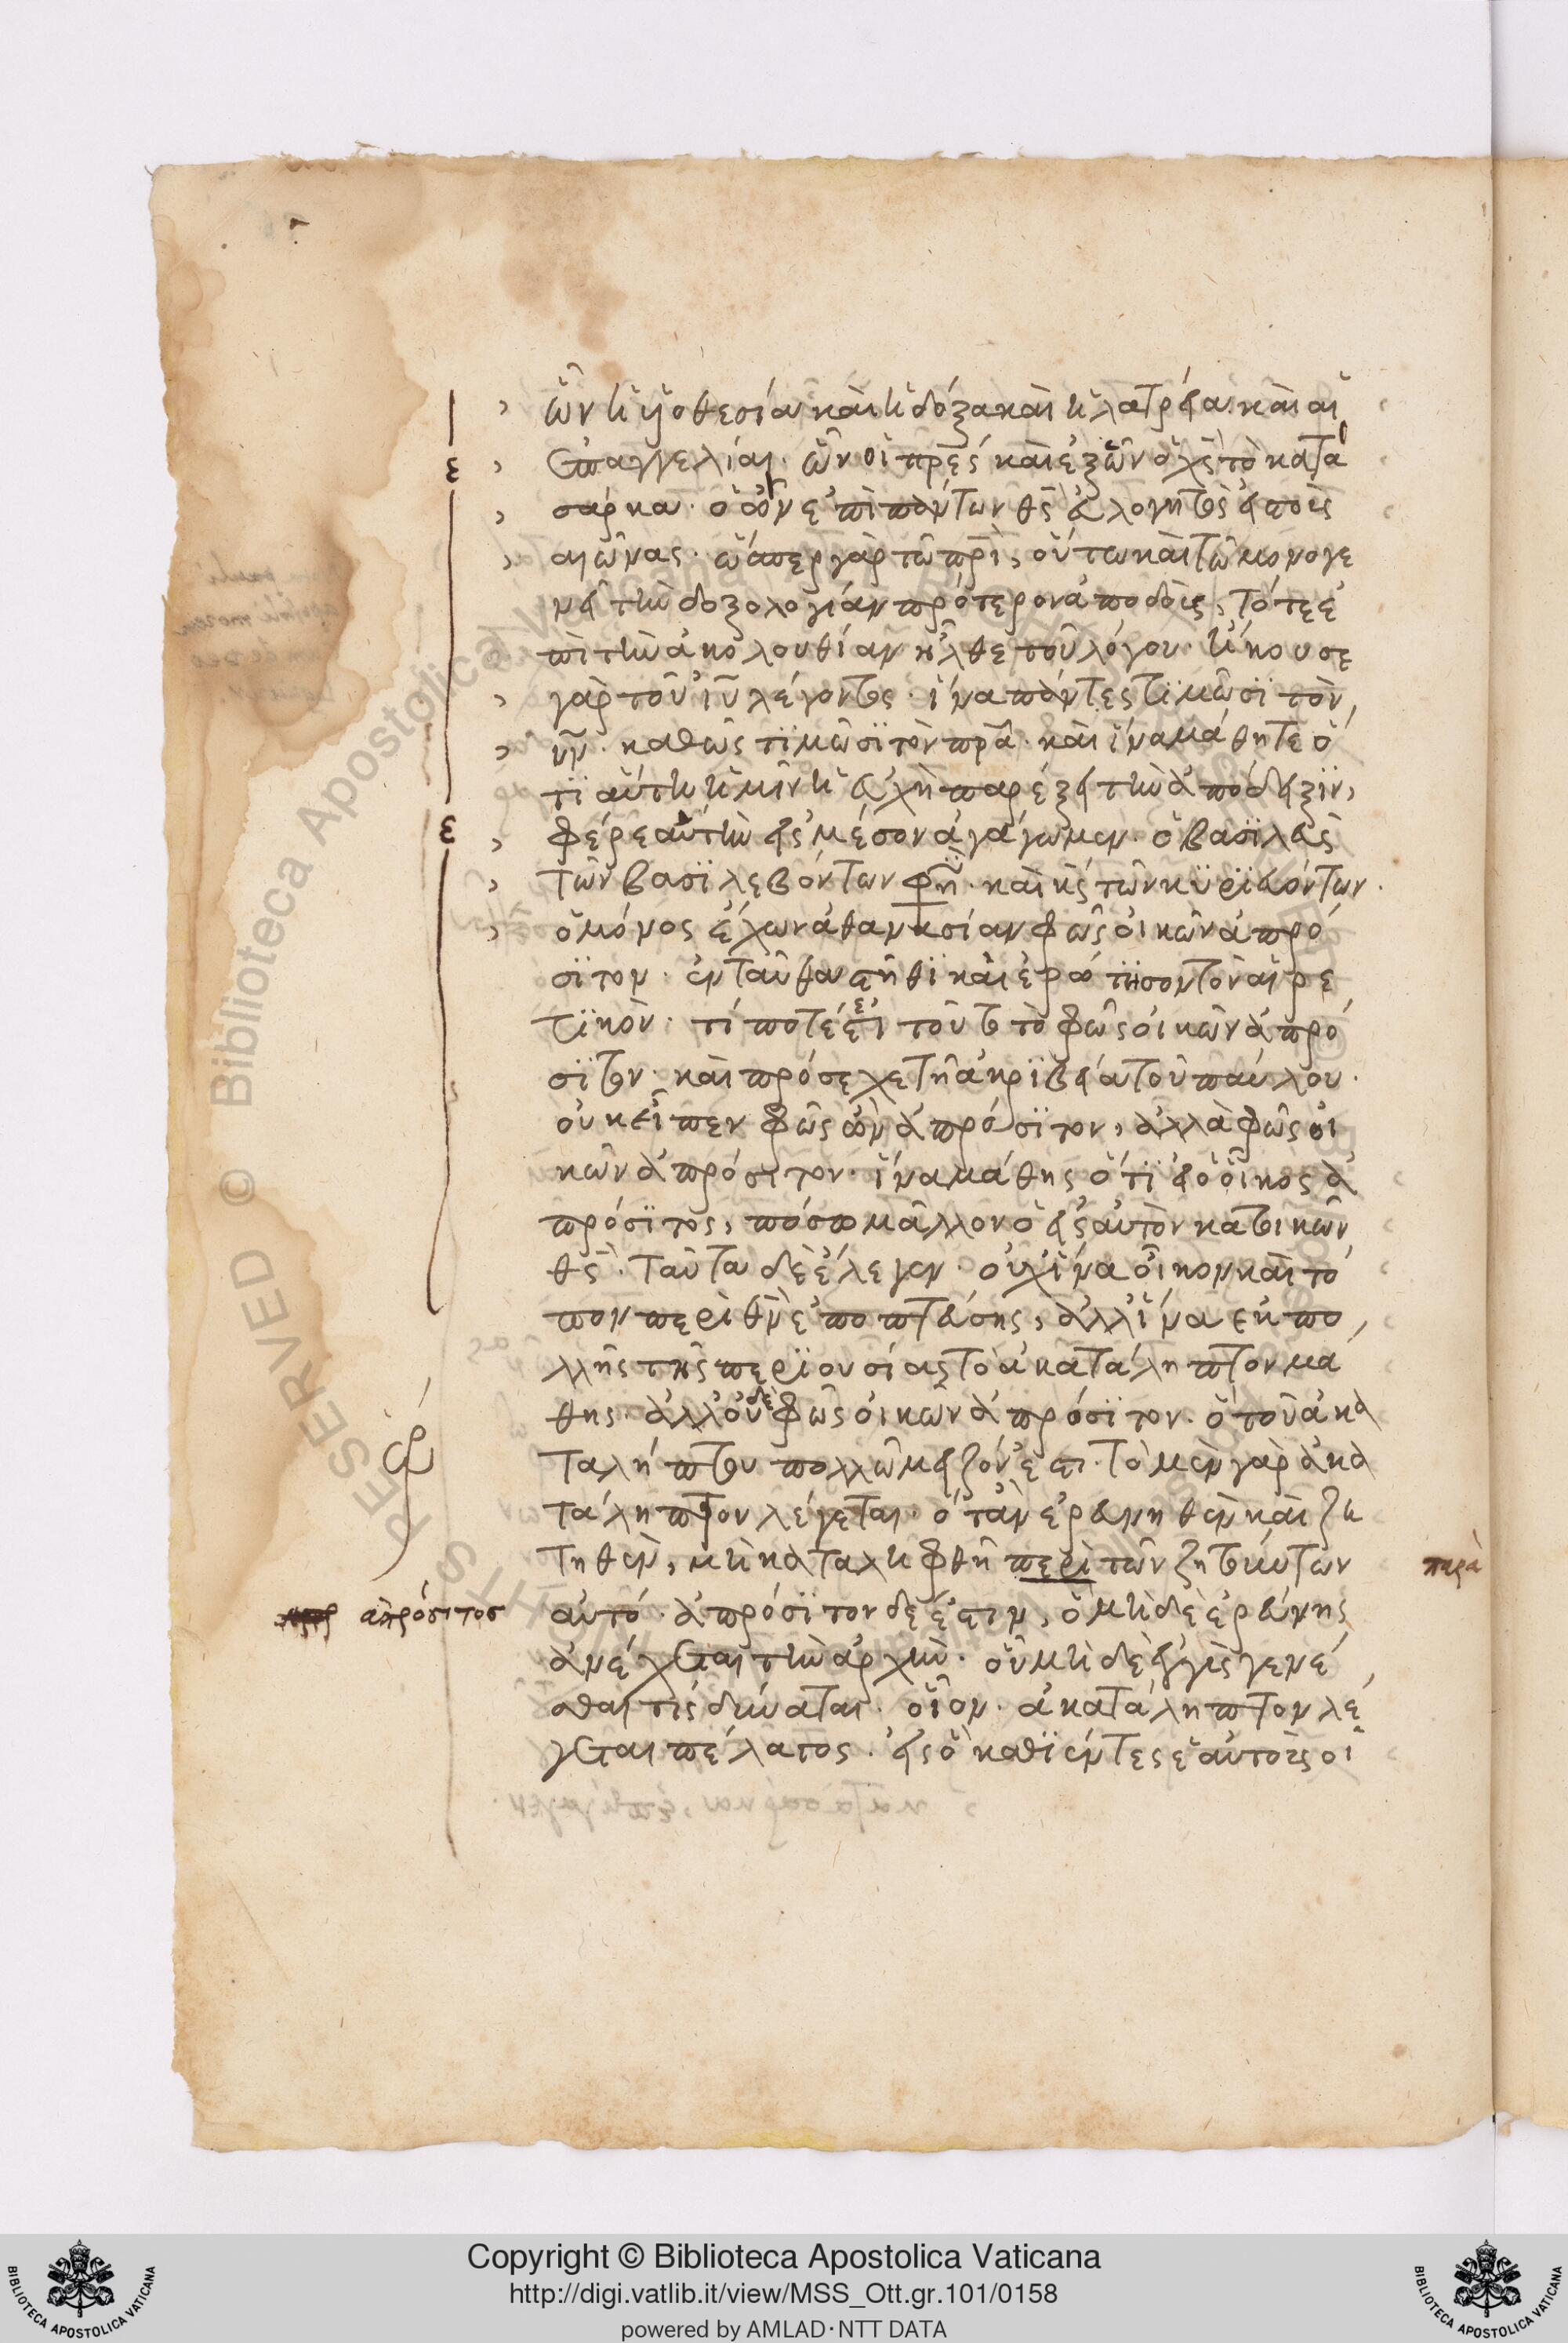 ὧν ἡ υἱοθεσία καὶ ἡ δόξα καὶ ἡ λατρεία· καὶ αἱ
ἐπαγγελίαι· ὧν οἱ πρ̅ε̅ς καὶ ἐξ ὧν ὁ χ̅ς̅ τὸ κατὰ
σάρκα· ὁ ὢν ἐπὶ πάντων θ̅ς̅ εὐλογητὸς εἰς τοὺς
αἰῶνας· ὥσπερ γὰρ τῶ π̅ρ̅ι̅, οὕτω καὶ τῶ μονογε
νεῖ τὴν δοξολογίαν πρότερον ἀποδοὺς, τότε ἐ
πὶ τὴν ἀκολουθίαν ἦλθε τοῦ λόγου· ἤκουσε
γὰρ τοῦ ι̅υ̅ λέγοντος· ἵνα πάντες τϊμῶσϊ τὸν
υ̅ν̅· καθὼς τϊμῶσϊ τὸν π̅ρ̅α̅· καὶ ἵνα μάθητε ὅ
τϊ αὕτη ἡμῖν ἡ εὐχὴ παρέξει τὴν ἀπόδειξϊν,
φέρε αὐτὴν εἰς μέσον ἀγάγωμεν· ὁ βασϊλεὺς
τῶν βασϊλευόντων φη̅· καὶ κ̅ς̅ τῶν κυρϊευόντων·
ὁ μόνος ἔχων ἀθανασίαν φῶς οἰκῶν ἀπρό
σϊτον· ἐνταῦθα στῆθϊ καὶ ἐρώτησον τὸν αἱρε
τϊκὸν· τί ποτέ ἐστι τοῦτο φῶς οἰκῶν ἀπρό
σϊτον· καὶ πρόσεχε τῆ ἀκρϊβεία τοῦ παύλου·
οὐκ εἶπεν φῶς ὢν ἀπρόσϊτον, ἀλλὰ φῶς οἰ
κῶν ἀπρόσιτον· ἵνα μάθης ὅτϊ εἰ ὁ οἶκος ἀ
πρόσϊτος, πόσω μᾶλλον ὁ εἰς αὐτὸν κατοικῶν
θ̅ς̅· ταῦτα δὲ ἔλεγεν· οὐχ ἵνα οἶκον καὶ τό
πον περὶ θ̅ν̅ ὑποπτεύσης, ἀλλ' ἵνα ἐκ πο
λλῆς τῆς περϊουσίας τὸ ἀκατάληπτον μά
θης· ἀλλ' οὐδὲ φῶς οἰκῶν ἀπρόσϊτον· ὃ τοῦ ἀκα
ταλήπτου πολλῶ μεῖζόν ἐστι· τὸ μὲν γὰρ ἀκα
τάληπτον λέγεται· ὅταν ἐρευνηθὲν καὶ ζη
τηθὲν, μὴ καταληφθῆ περὶ τῶν ζητούντων
παρὰ
αὐτό· ἀπρόσϊτον δέ ἐστιν, ὃ μηδὲ ἐρεύνης
ἀπρόσιτος
ἀνέχεται τὴν ἀρχὴν· οὗ μηδὲ ἐγγὺς γενέ
σθαι τίς δύναται· οἷον· ἀκατάληπτον λέ
γεται πέλαγος· εἰς ὃ καθϊέντες ἑαυτοὺς οἱ